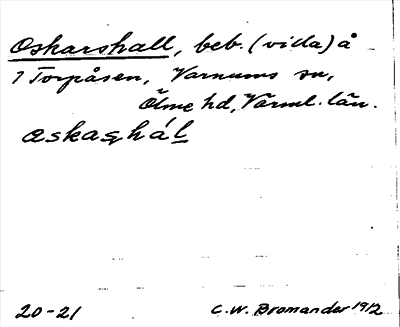 Oskarshall, beb. (villa) å
1 Torpåsen, Varnums sn,
Ölme hd, Värml. län.
askašhál
20-21
C. W. Bromander 1912